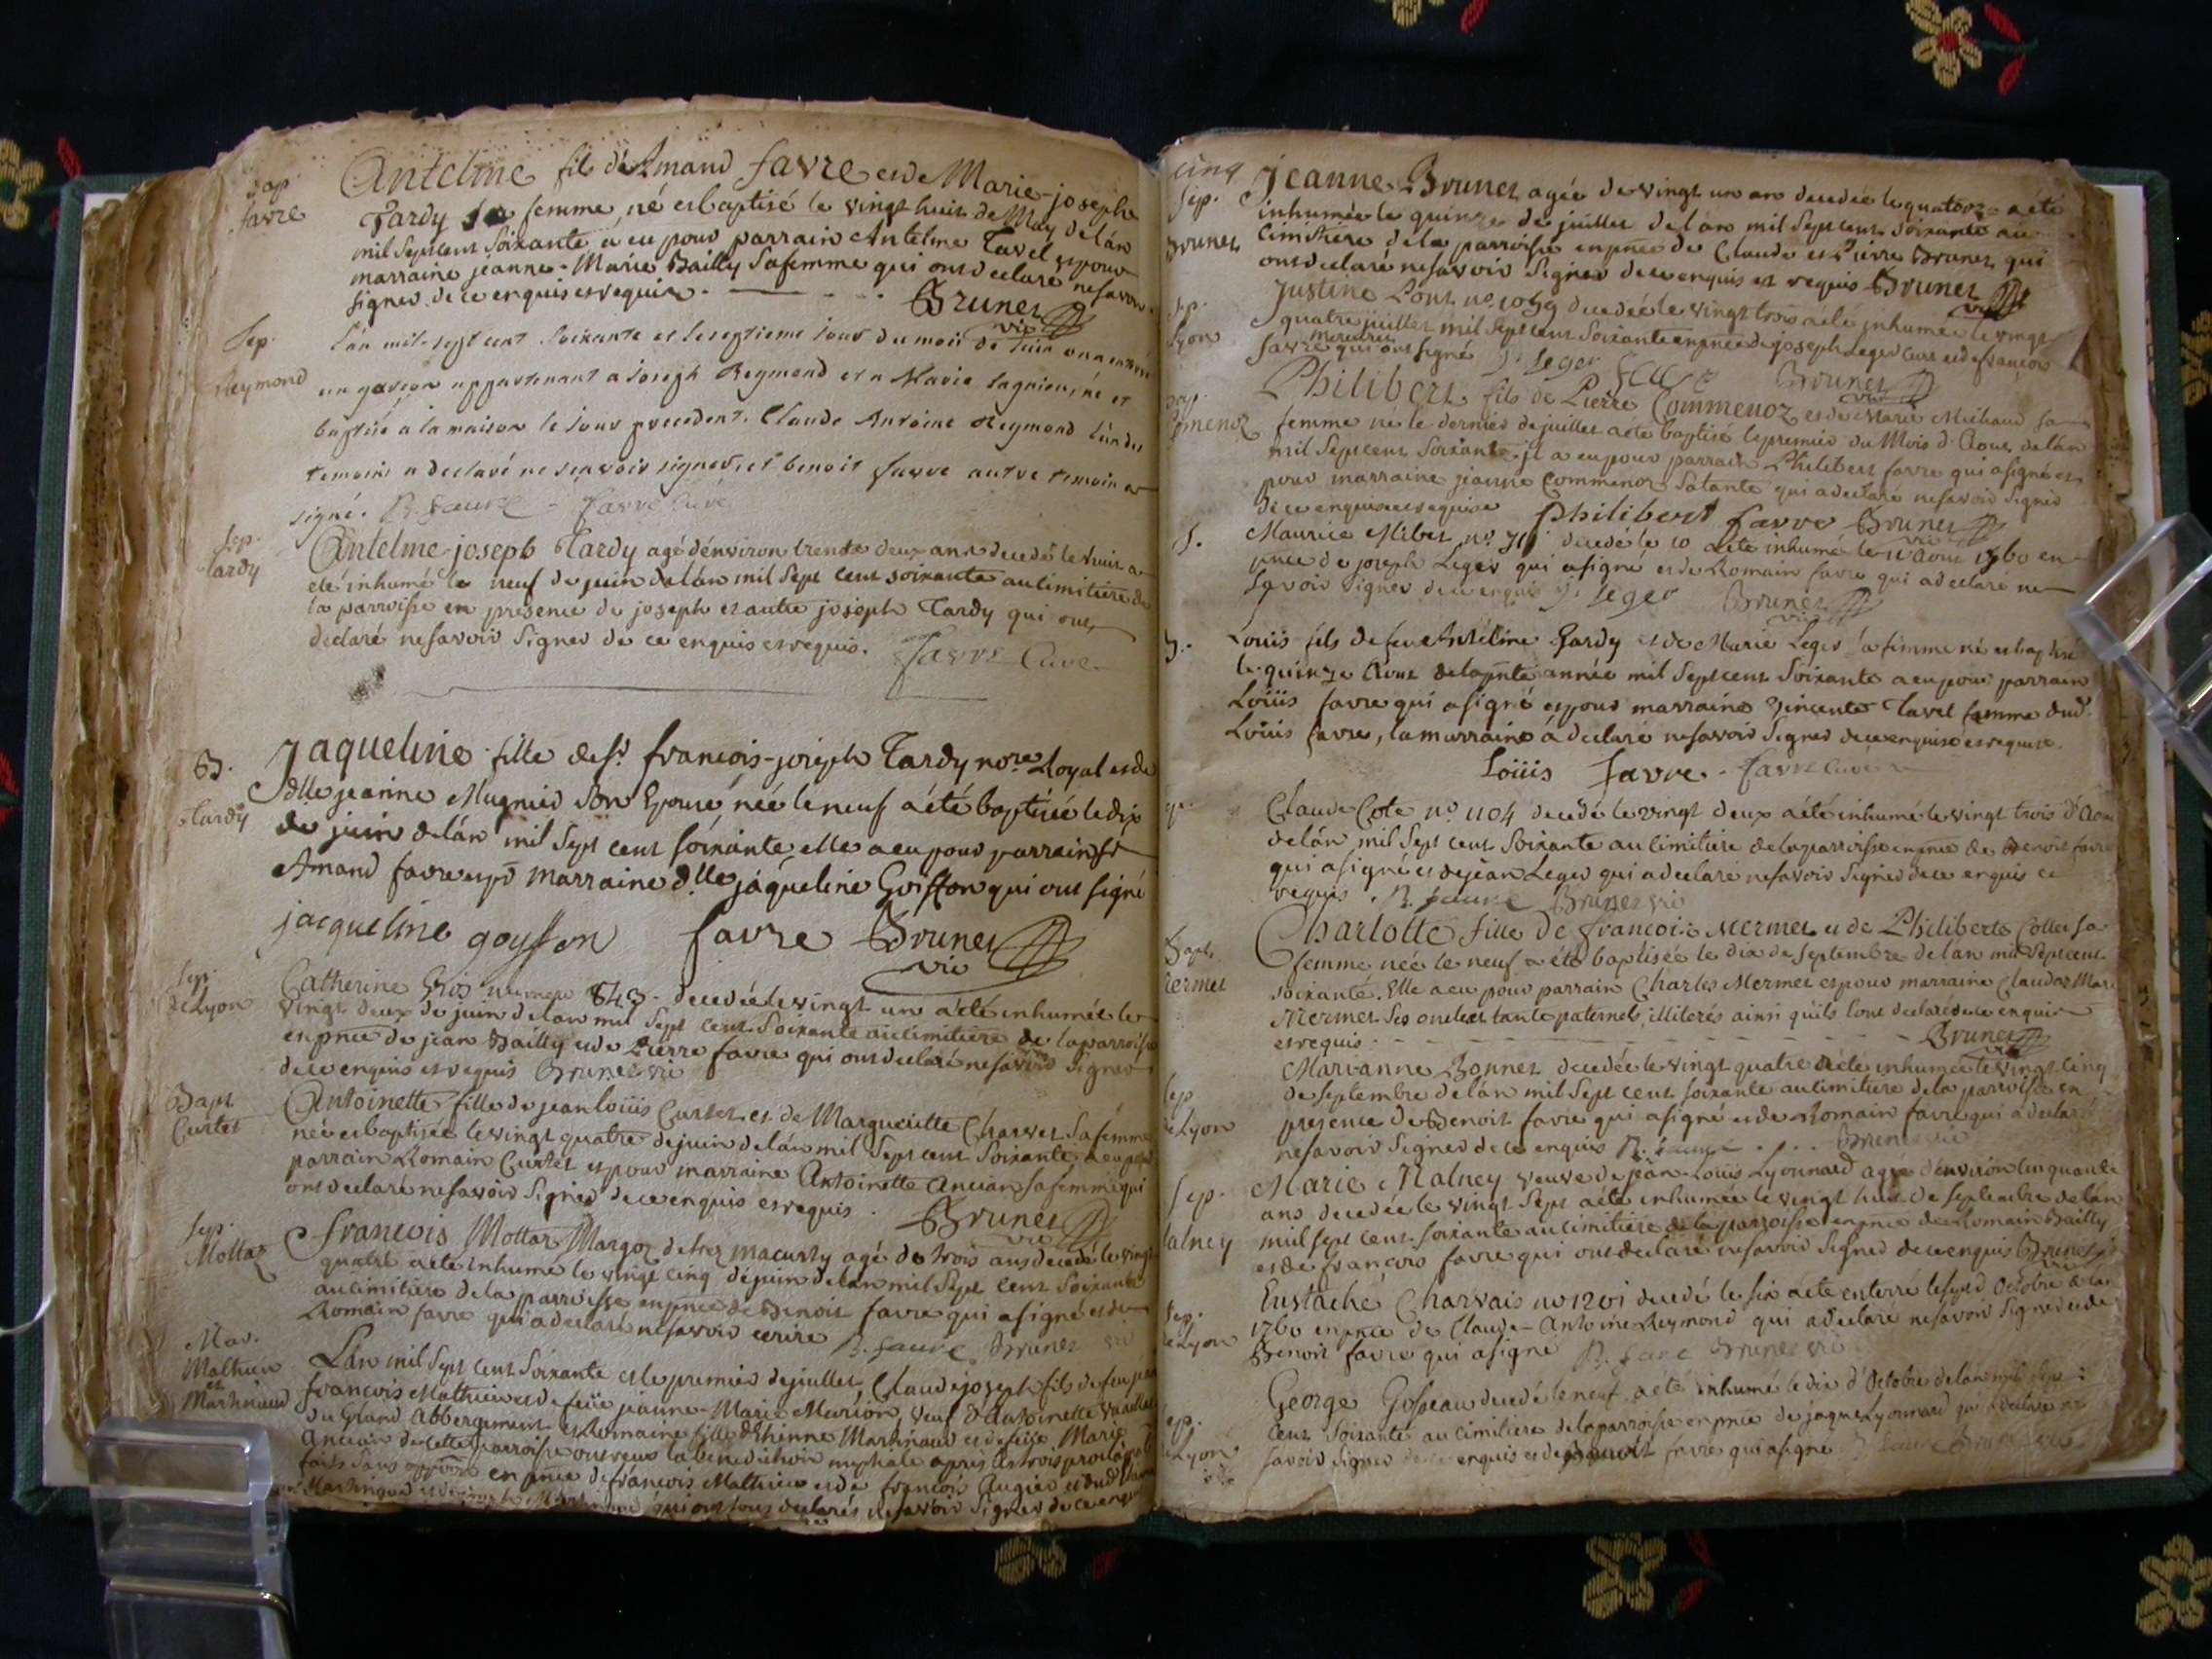 Bap.
favre
Antelme fils d'Amand favre et de Marie-josephe
Tardy sa femme, né et baptisé le vingt huit de May de l'án
mil Sept cent Soixante á eu pour parrain Antelme Tavel et pour
marraine jeanne-Marie Bailly Sa femme qui ont declaré ne savoir
signer de ce enquis et requis. Brunet
vic
Sep.
Reymond
L'an mil-sept cent Soixante et le septieme jour du mois de juin on a enterré
un garson appartenant a Joseph Reymond et a Marie lagnieu, né et
baptisé a la maison le jour precedent. Claude Antoine Reymond l'un des
temoins a declaré ne scavoir signer, et benoit favre autre temoin a
signé. B. favre - favre Curé
Sep.
tardy
Antelme-joseph Tardy agé d'énviron trente deux ans decedé le huit a
eté inhumé le neuf de juin de l'án mil Sept cent soixante au cimitiere de
la parroisse en presence de joseph et autre joseph Tardy qui ont
declaré ne savoir Signer de ce enquis et requis. favre Curé
B.
tardy
Jaqueline fille de Sr. francois-joseph Tardy nore. Royal et de
dlle jeanne Mugnier Son Epouse, née le neuf a été baptisée le dix
de juin de l'án mil Sept cent soixante, elle a eu pour parrain Sr
Amand favre et pr marraine dlle jáqueline Goiffon qui ont signé
jacqueline goyffon favre Brunet
vic
Sep.
de Lyon
Catherine Gros numero 843 - decedée le vingt un a été inhumée le
vingt deux de juin de l'an mil Sept cent Soixante au cimitiere de la parroisse
en pnce de jean Bailly et de Pierre favre qui ont declaré ne savoir Signer
de ce enquis et requis Brunet vic
Bapt
Curtet
Antoinette fille de jean loüis Curtet et de Margueritte Charvet Sa femme
née et baptisée le vingt quatre de juin de l'án mil Sept cent Soixante a eu pour
parrain Romain Curtet et pour marraine Antoinette Ancian sa femme qui
ont declaré ne savoir Signer de ce enquis et requis. Brunet
vic
Sep.
Mottaz
francois Mottaz Margoz de macusty agé de trois ans decedé le vingt
quatre a eté inhumé le vingt cinq de juin de l'an mil Sept cent Soixante
au cimitiere de la parroisse en pnce de Benoit favre qui a signé et de
Romain favre qui a declaré ne savoir ecrire B. favre Brunet vic
Mar.
Mathieu
et
Martinaud
L'án mil Sept cent Soixante et le premier de juillet, Claude joseph fils de feu
francois Mathieu et de feüe jeanne-Marie Marion, veuf d'Antoinette
du Grand Abbergement et Romaine fille d'Ethienne Martinaud et de feüe Marie
Ancian de cette parroisse ont reçus la benediction nuptiale apres les trois proclamations
faites sans oppoon en pnce de francois Mathieu et de francois Augier et dud
Martinaud qui ont tous declarés ne savoir Signer de ce enquis
cinq
Sep.
Brunet
Jeanne Brunet agée de vingt un an decedée le quatorze a été
inhumée le quinze de juillet de l'an mil Sept cent soixante au
cimitiere de la parroisse en pnce de Claude et Pierre Brunet qui
ont declaré ne savoir Signer de ce enquis et requis Brunet
vic
Sep.
Lyon
Justine Pont no. 1059 decedée le vingt trois a été inhumée le vingt
quatre juillet mil Sept cent Soixante en pnce de joseph Leger et de francois
favre qui ont signé J. leger favre Brunet
vic
Bap.
Comenoz
Philibert fils de Pierre Commenoz et de Marie Michaud sa
femme né le dernier de juillet a eté baptisé le premier du Mois d'Aout de l'án
mil Sept cent Soixante. jl a eu pour parrain Philibert favre qui a signé et
pour marraine jeanne Commenoz Sa tante qui a declaré ne savoir Signer
de ce enquise et requise Philibert favre Brunet
vic
S.
Maurice Mibet no. decedé le 10 a eté inhumé le 11 aout 1760 en
pnce de joseph Leger qui a signé et de Romain favre qui a declaré ne
savoir signer de ce enquis J. leger Brunet
vic
B.
Louis fils de feu Antélme Tardy et de Marie Leger sa femme né et baptisé
le quinze Aout de la pnte année mil Sept cent Soixante a eu pour parrain
Loüis favre qui a signé et pour marraine Vincente Tavel femme dud.
Loüis favre, la marraine á declaré ne savoir Signer de ce enquise et requise.
loüis favre - favre Curé
Claude Cote no. 1104 decedé le vingt deux a été inhumé le vingt trois d'Aout
de l'án mil Sept cent Soixante au cimitiere de la parroisse en pnce de Benoit favre
qui a signé et de jean Leger qui a declaré ne savoir Signer de ce enquis et
requis. B. favre Brunet vic
Bapt.
Mermet
Charlotte fille de francois Mermet et de Philiberte Collet sa
femme née le neuf a été baptisée le dix de septembre de l'an mil Sept cent
soixante. Elle a eu pour parrain Charles Mermet et pour marraine Claudaz Marie
Mermet Ses oncle et tante paternels, illiterés ainsi qu'ils l'ont declarés de ce enquis
et requis. Brunet
vic
Sep
de Lyon
Marianne Bonnet decedée le vingt quatre a eté inhumée le vingt cinq
de septembre de l'án mil Sept cent soixante au cimitiere de la parroisse en
presence de Benoit favre qui a signé et de Romain favre qui a declaré
ne savoir Signer de ce enquis B. favre Brunet vic
Sep.
Malney
Marie Malney veuve de jean-Louis Lyonnard agée d'environ cinquante
ans decedée le vingt Sept a eté inhumée le vingt huit de septembre de l'án
mil sept cent soixante au cimitiere de la parroisse en pnce de Romain Bailly
et de francois favre qui ont declaré ne savoir Signer de ce enquis Brunet
Sep.
de Lyon
Eustache Charvais no 1201 decedé le six a eté enterré le sept d'Octobre de l'an
1760 en pnce de Claude-Antoine Reymond qui a declaré ne savoir Signer et de
Benoit favre qui a signé B. favre Brunet vic
Sep.
de Lyon
George Gosseau decedé le neuf a été inhumé le dix d'Octobre de l'án mil Sept
cent Soixante au cimitiere de la parroisse en pnce de jaque Lyonnard qui a declaré ne
savoir signer de ce enquis et de Benoit favre qui a signé B favre Brunet vic